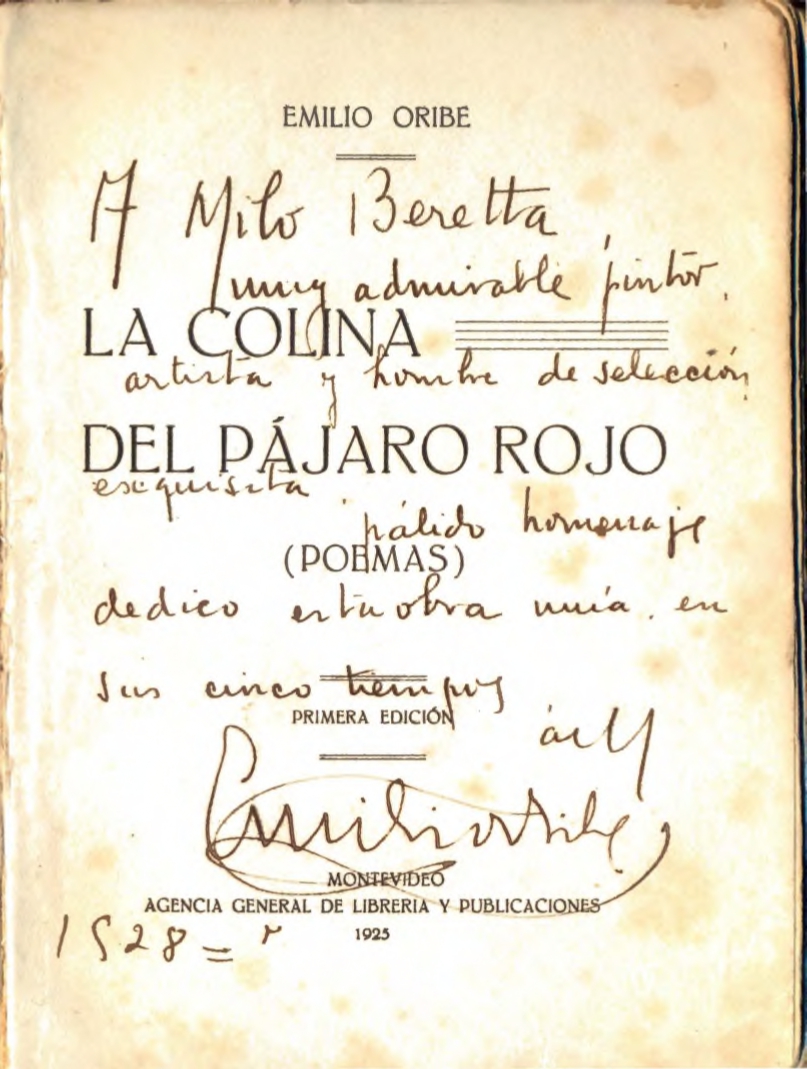 EMILIO ORIBE
A Milo Beretta
muy admirable pintor,
LA COLINA
artista y hombre de selección
DEL PÁJARO ROJO
esquisita pálido homenaje
(POEMAS)
dedico esta obra mía. en
sus cinco tiempos
PRIMERA EDICIÓN
Emilio Oribe
MONTEVIDEO
AGENCIA GENERAL DE LIBRERIA Y PUBLICACIONES
1928
1925